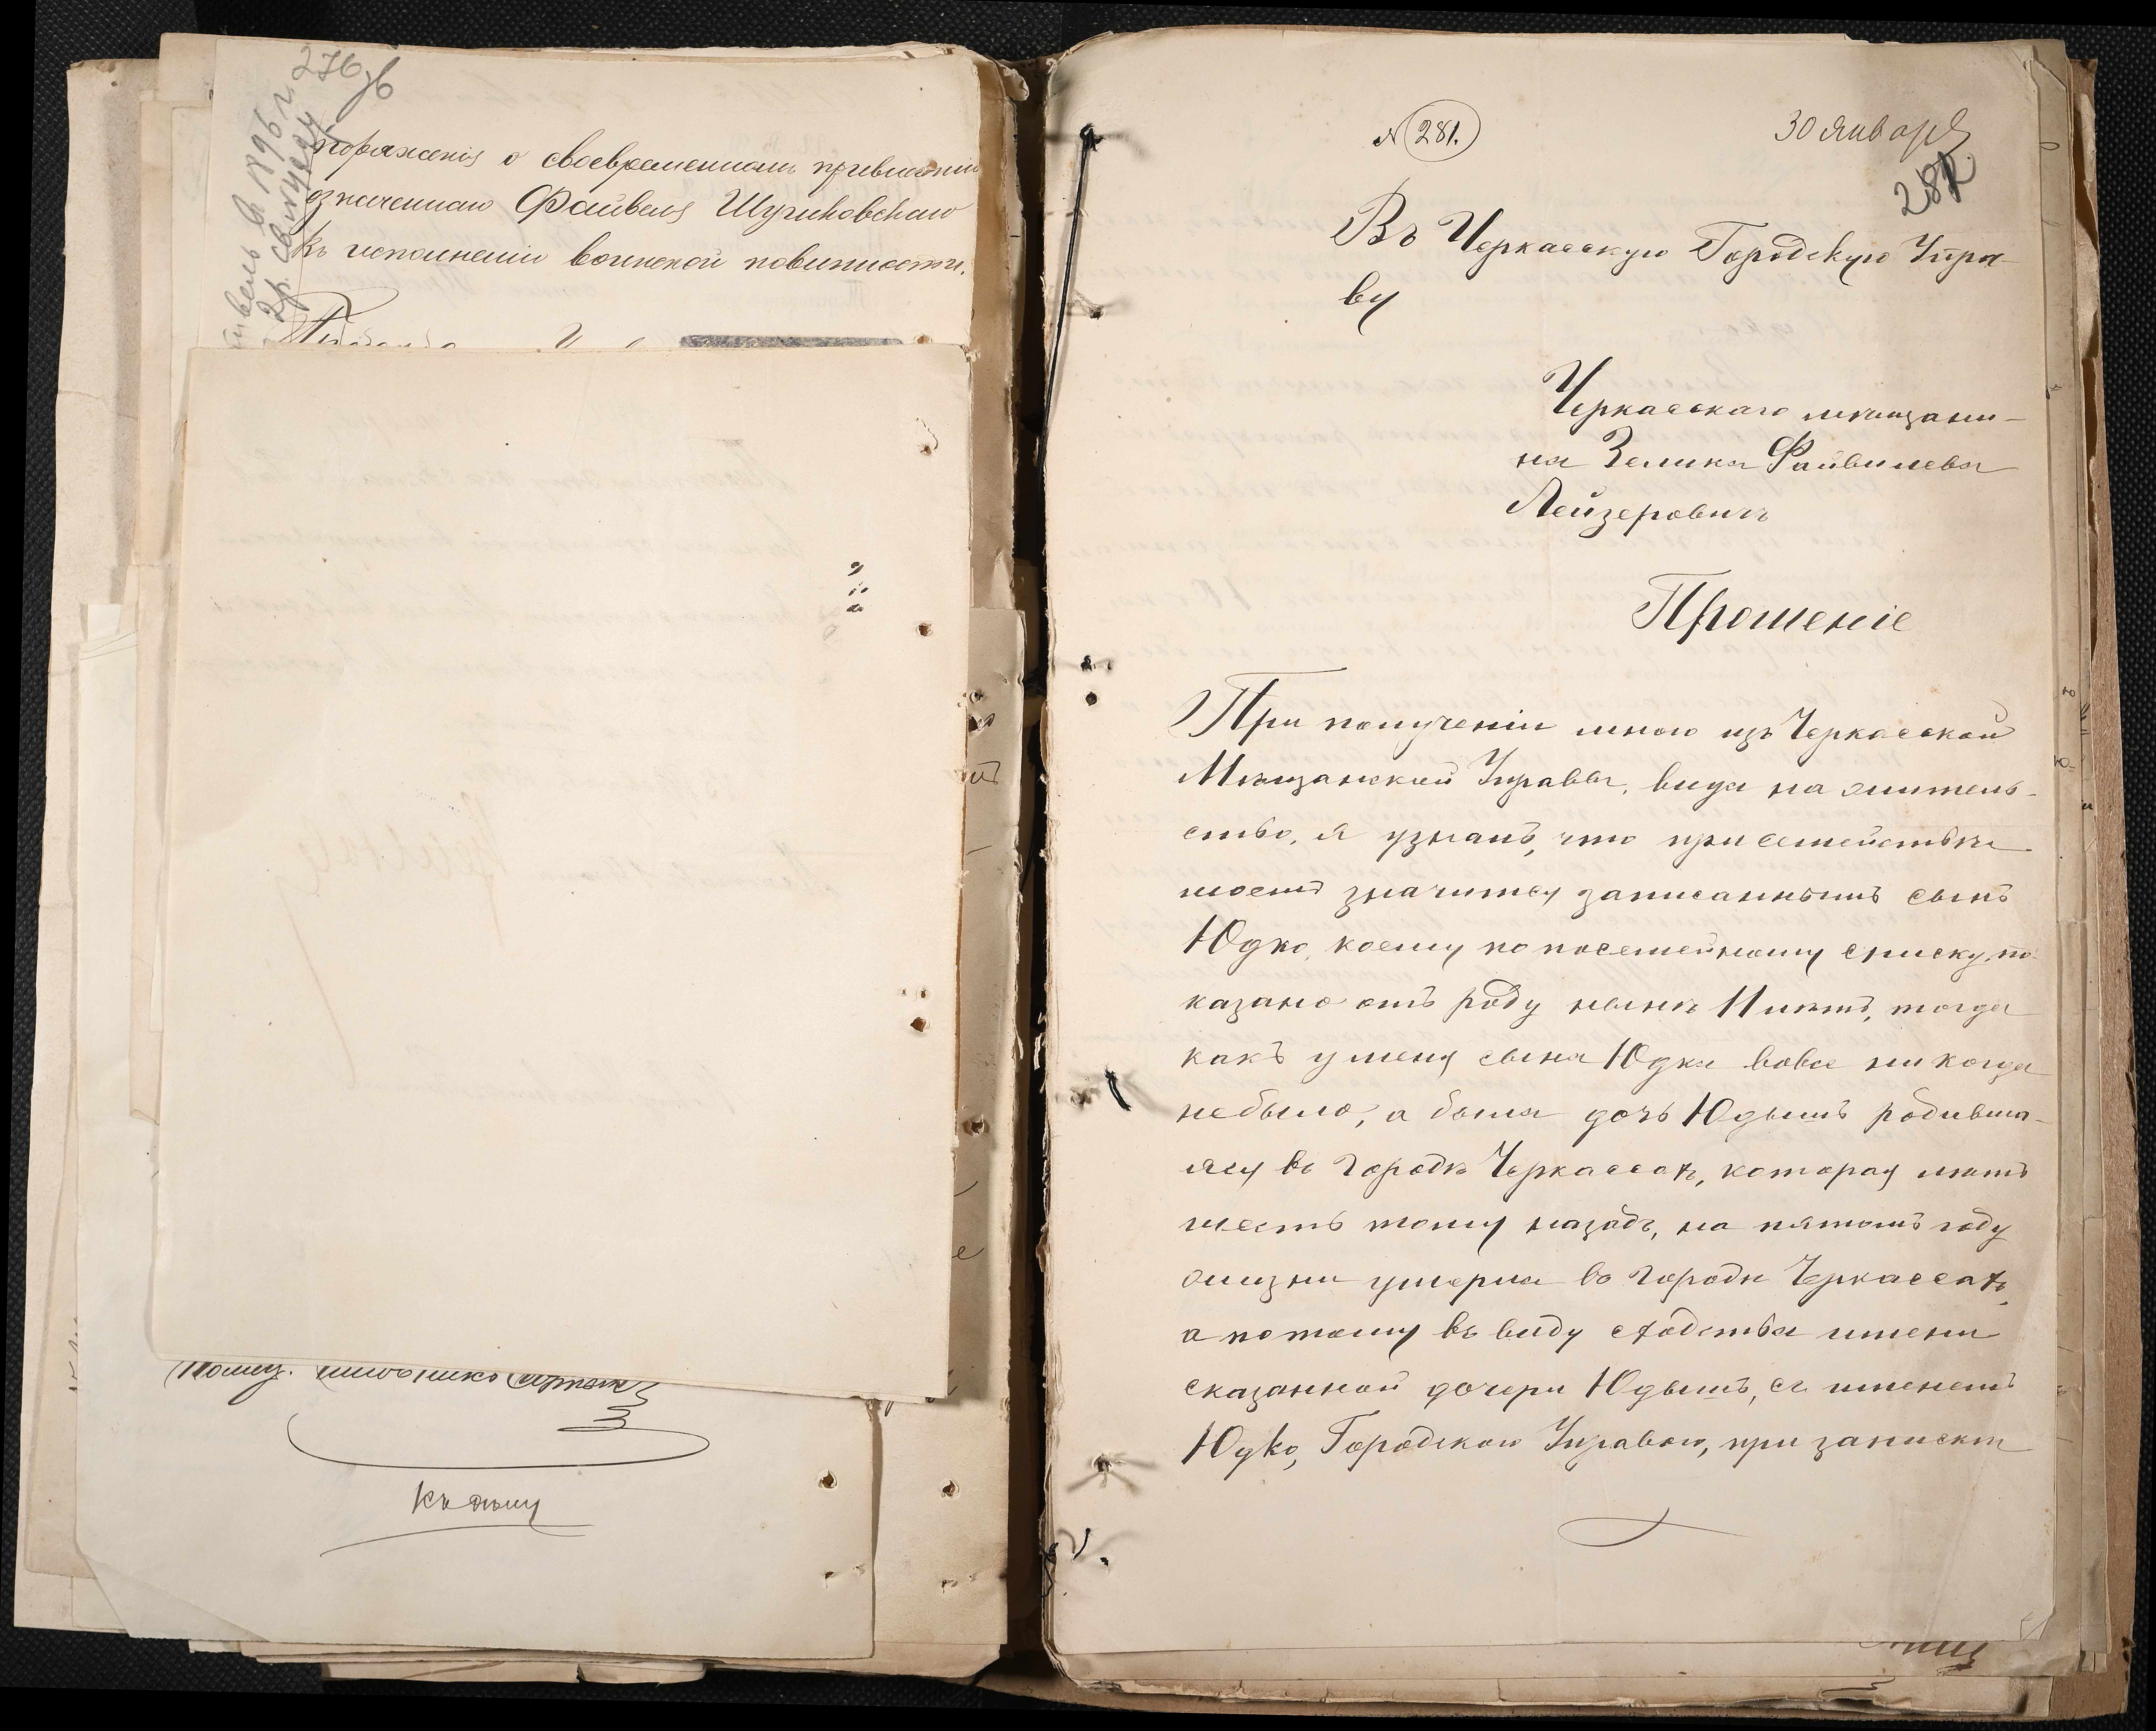 276 об
въ 1896 г.
поряженія о своевременномъ привлеченіи
означеннаго Файвеля Шугиковскаго
къ исполненію воинской повинности.
къ дѣлу
№ 281.
30 Января
282
Въ Черкасскую Городскую Упра-
ву
Черкасскаго мѣщани-
на Зелика Файвилева
Лейзеровичъ
Прошеніе
При полученіи мною изъ Черкасской
Мѣщанской Управы, вида на житель-
ство, я узналъ, что при семействѣ
моемъ значится записаннымъ сынъ
Юдко, коему по посемейному списку по-
казано отъ роду нынѣ 11 лѣтъ, тогда
какъ у меня сына Юдки вовсе никогда
не было, а была дочь Юдымъ родивша-
яся въ городѣ Черкассахъ, которая лѣтъ
шесть тому назадъ, на пятомъ году
жизни умерла въ городѣ Черкассахъ,
а потому въ виду сходства имени
сказанной дочери Юдымъ, съ именемъ
Юдко, Городскою Управою, при запискѣ